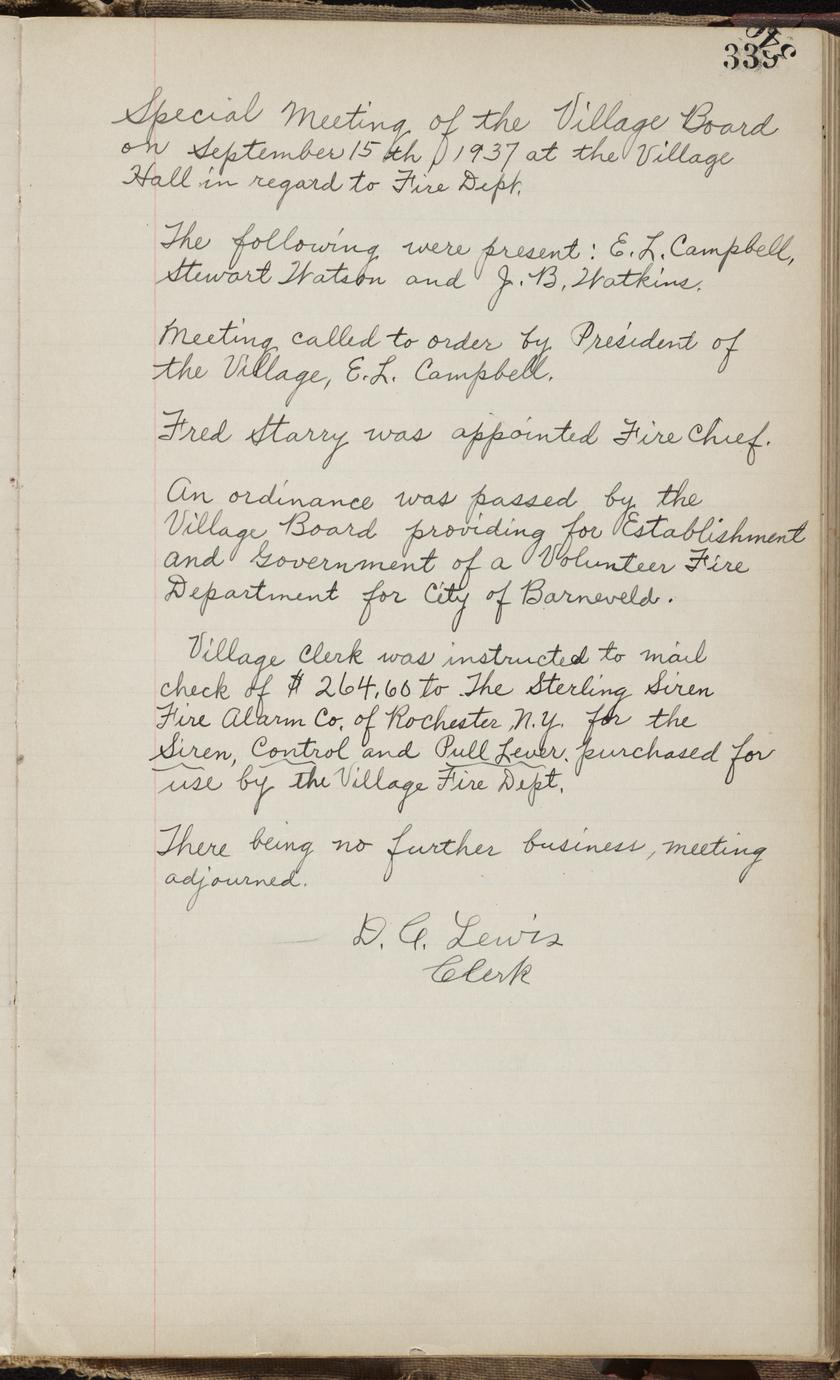 339
Special Meeting of the Village Board
on September 15th, 1937 at the Village
Hall in regard to Fire Dept.
The following were present: E. L. Campbell,
Stewart Watson and J. B. Watkins.
Meeting called to order by President of
the Village, E. L. Campbell.
Fred Starry was appointed Fire Chief.
An ordinance was passed by the
Village Board providing for Establishment
and Government of a Volunteer Fire
Department for City of Barneveld.
Village Clerk was instructed to mail
check of $ 264.60 to The Sterling Siren
Fire Alarm Co. of Rochester, N.Y. for the
Siren, Control and Pull Lever, purchased for
use by the Village Fire Dept.
There being no further business, meeting
adjourned.
D. C. Lewis
Clerk